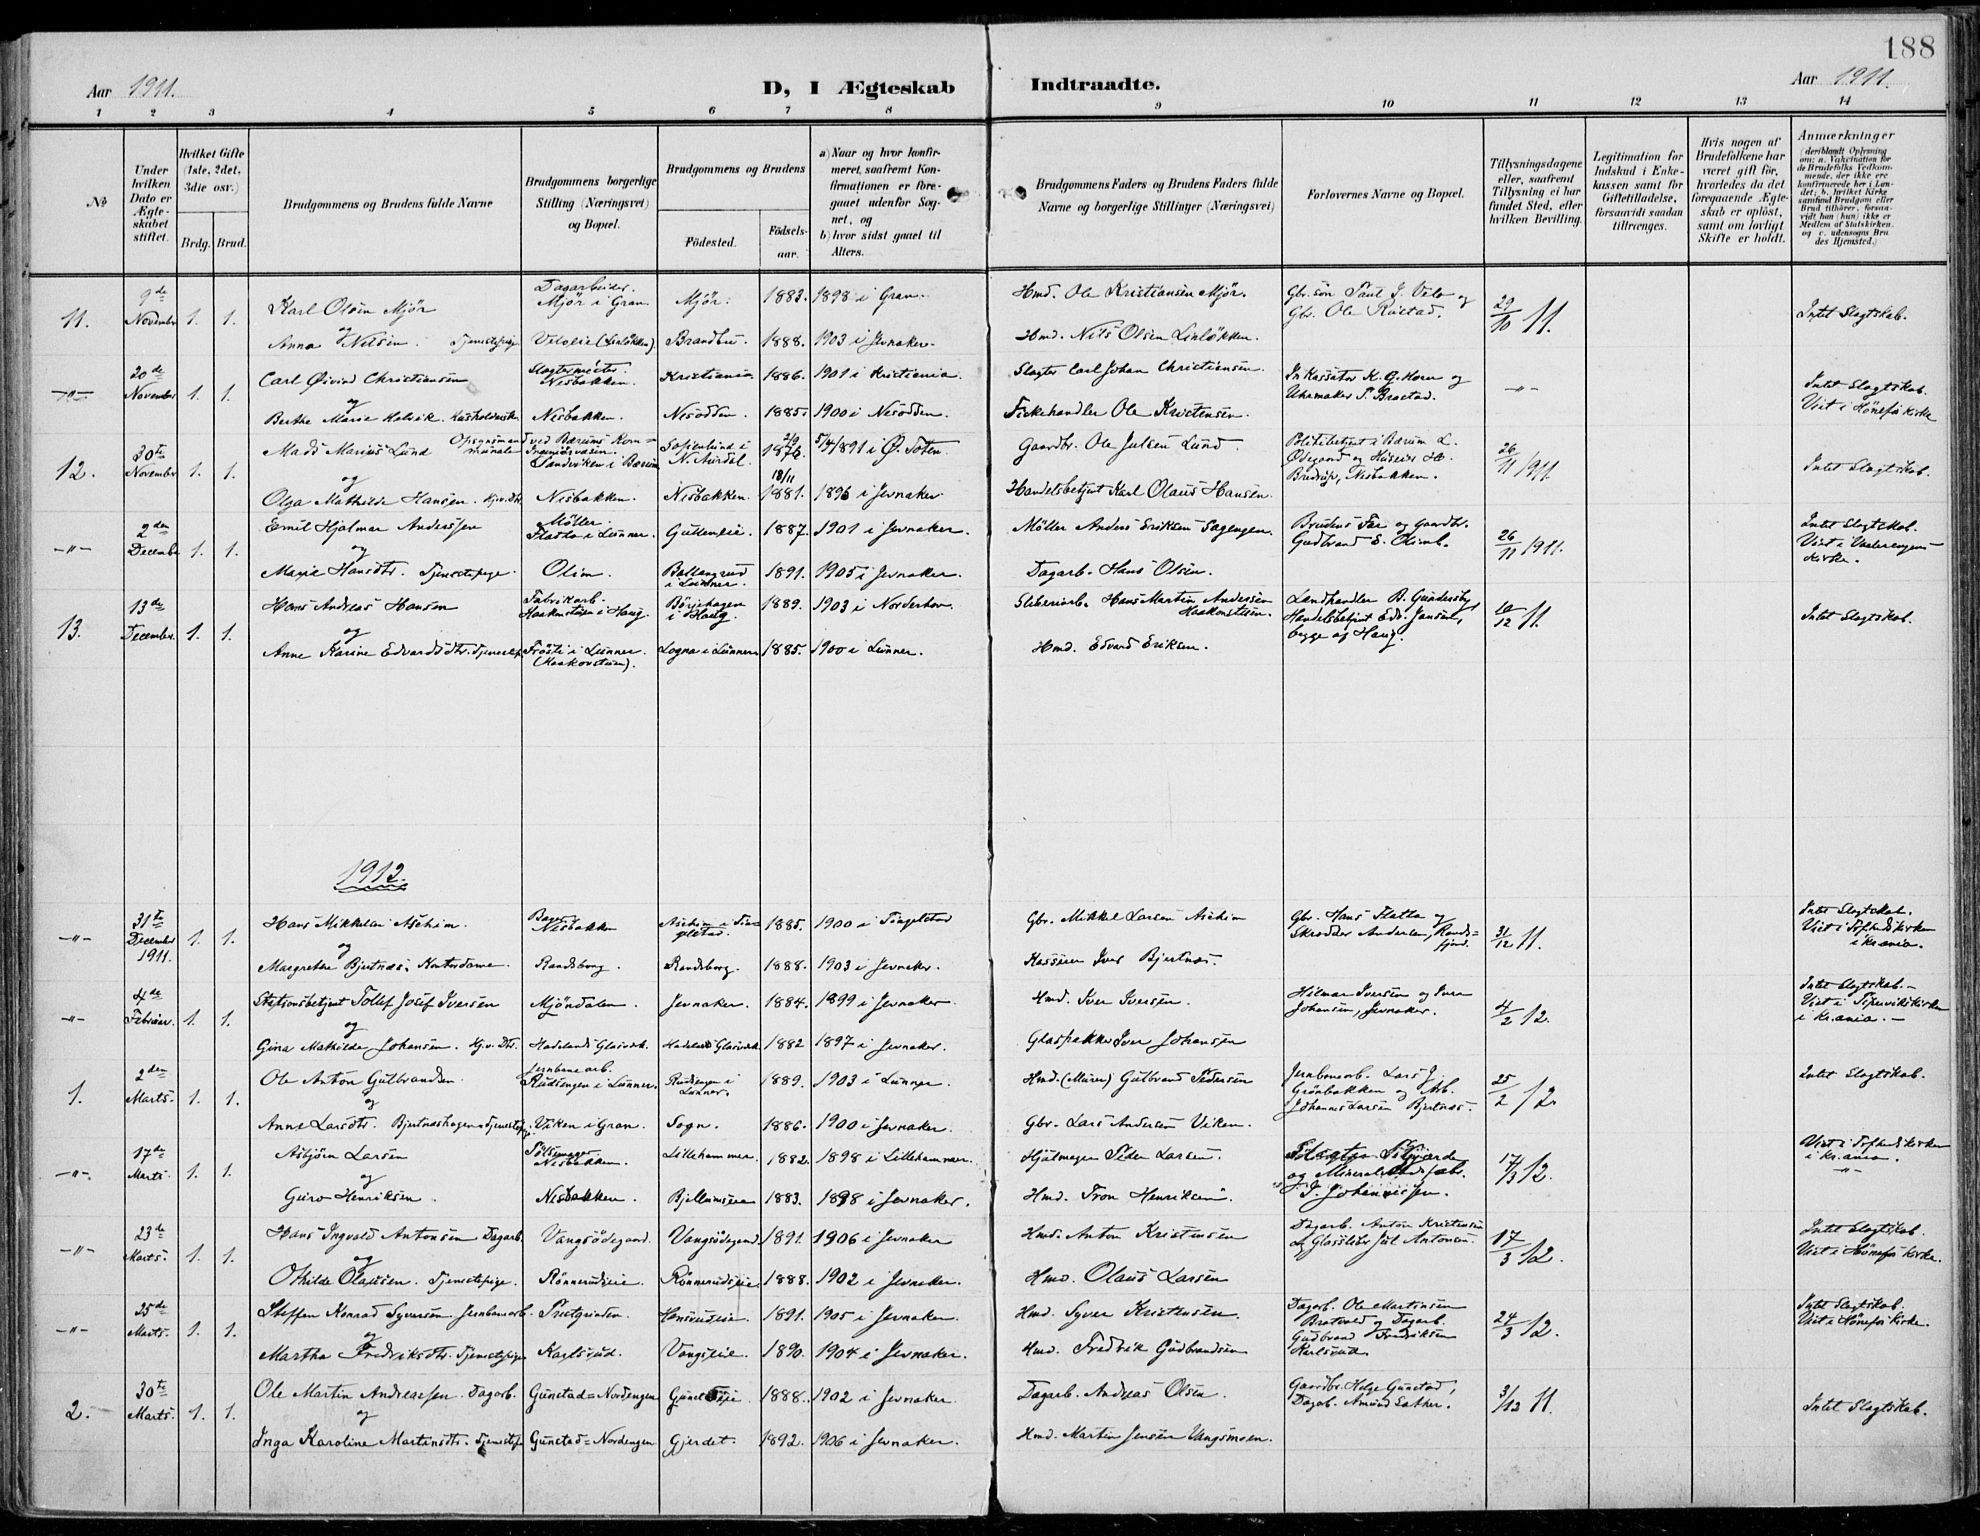 188
Aar 1911.
D, I Ægteskab Indtraadte.
Aar 1911.
1 2 3 4 5 6 7 8 9 10 11 12 13 14
No
Under hvilken Dato er Ægteskabet stiftet.
Hvilket Gifte (1ste, 2det, 3die osv.)
Brdg. Brud.
Brudgommens og Brudens fulde Navne
Brudgommens borgerlige Stilling (Næringsvei) og Bopæl.
Brudgommens og Brudens
Födested.
Födselsaar.
a) Naar og hvor konfirmeret, saafremt Konfirmationen er foregaaet udenfor Sognet, og
b) hvor sidst gaaet til Alters.
Brudgommens Faders og Brudens Faders fulde Navne og borgerlige Stillinger (Næringsvei)
Forlovernes Navne og Bopæl.
Tillysningsdagene eller, saafremt Tillysning ei har fundet Sted, efter hvilken Bevilling.
Legitimation for Indskud i Enkekassen samt for Giftetilladelse, forsaavidt saadan tiltrænges.
Hvis nogen af Brudefolkene har været gift før, hvorledes da det foregaaende Ægteskab er oplöst, samt om lovligt Skifte er holdt.
Anmærkninger (deriblandt Oplysning om: a. Vakcination for de Brudefolks Vedkommende, der ikke ere konfirmerede her i Landet; b. hvilket Kirkesamfund Brudgom eller Brud tilhörer, forsaavidt han (hun) ikke er Medlem af Statskirken, og c. udensogns Brudes Hjemsted.)
11. 9de November 1. 1. Karl Olsen Mjör Dagarbeider. Mjör i Gran Mjör. 1883. 1898 i Gran. Hmd. Ole Kristiansen Mjör. Gbr. sön Paul J. Velo og Gbr. Ole Rustad. 29/10 11. Intet Slagtskab.
og
Anna Nilsen. Tjenestepige Veloeie (Linlökken). Brandbu. 1888. 1903 i Jevnaker. Hmd. Nils Olsen Linlökken.
—"— 20de November 1. 1. Carl Øivind Christiansen Slagtermester. Nesbakken. Kristiania. 1886. 1901 i Kristiania. Slagter Carl Johan Christiansen. Inkassator K. G. Horn og Uhrmaker P. Braastad. —"— Intet Slagtskab. Viet i Hönefos kirke
og
Berthe Marie Halvik. Nesbakken. Nesodden. 1885. 1900 i Nesodden. Fiskehandler Ole Kristensen.
12. 30te November 1. 1. Mads Marius Lund Opsynsmand ved Bærums Kommunale Ingeniörvæsen. Sandviken i Bærum Sofienlund i N. Aurdal. 29/9 1876. 5/4 1891 i Ø. Toten Gaardbr. Ole Julsen Lund. Politibetjent i Bærum L. Ödegaard og Huseier H. Bredrup, Nesbakken. 26/11 1911. Intet Slagtskab.
og
Olga Mathilde Hansen. Nesbakken. Nesbakken. 18/11 1881. 1896 i Jevnaker Handelsbetjent Karl Olaus Hansen.
—"— 2den December 1. 1. Emil Hjalmar Anderssen Möller. Flatla i Lunner. Gullerneie. 1887. 1901 i Jevnaker. Möller Anders Eriksen Sagengen. Brudens Far og Gaardbr. Gudbrand E. Olimb. 26/11 1911. Intet Slagtskab. Viet i Vaalerengens Kirke.
og
Marie Hansdtr. Tjenestepige. Olim. Ballangrud i Lunner. 1891. 1905 i Jevnaker. Dagarb. Hans Olsen.
13. 13de December. 1. 1. Hans Andreas Hansen Fabrikarb. Haakonstuen i Haug. Börjehagen i Haug 1889. 1903 i Norderhov. Sliberiarb. Hans Martin Andersen Haakonstuen. Landhandler B. Gundersby, Handelsbetjent Edv. Jansen, begge af Haug. 10/12 11. Intet Slagtskab.
og
Anne Karine Edvardsdtr. Tjenestep. Fröslie i Lunner. (Haakonstuen). Logna i Lunner 1885. 1900 i Lunner. Hmd. Edvard Eriksen.
1912.
—"— 31te December 1911. 1. 1. Hans Mikkelsen Aschim. Bager Nesbakken Aschim i Tingelstad. 1885. 1900 i Tingelstad Gbr. Mikkel Larsen Aschim Gbr. Hans Flatla og Skrædder Andersen, Randsfjord. 31/12 11. Intet Slagtskab. Viet i Trefoldighedskirken i Kr.ania.
og
Margrethe Bjertnæs, Kontordame. Randsborg. Randsborg. 1888. 1903 i Jevnaker. Kasserer Iver Bjertnæs.
—"— 4de Februar. 1. 1. Stationsbetjent Tollef Josef Iversen Mjöndalen. Jevnaker. 1884. 1899 i Jevnaker. Hmd. Iver Iversen. Hilmar Iversen og Iver Johansen, Jevnaker. 4/2 12. Intet Slagtskab. Viet i Piperviks kirken i Kr.ania.
og
Gina Mathilde Johansen. Hj.v. Dtr. Hadelands Glasværk. Hadelands Glasværk. 1882 1897 i Jevnaker. Glaspakker Iver Johansen
1. 2den Marts. 1. 1. Ole Anton Gulbrandsen. Jernbanearb. Rudsengen i Lunner. Rudsengen i Lunner. 1889. 1903 i Lunner. Hmd. (Murer) Gulbrand Pedersen Jernbanearb. Lars J. Grönbakken og Arb. Johannes Larsen Bjertnæs. 25/2 12. Intet Slagtskab.
og
Anne Larsdtr. Bjertnæshagen. Tjenestepige. Viken i Gran. Sogn. 1886. 1900 i Jevnaker. Gbr. Lars Andersen Viken.
—"— 17de Marts. 1. 1. Asbjörn Larsen Pölsemager. Nesbakken. Lillehammer. 1882. 1898 i Lillehammer. Hjulmager Peder Larsen. og Mineralvandsfabr. J. Johannessen. 17/3 12. Viet i Trefoldighedskirken i Kr.ania. —"—
og
Guro Henriksen. Nesbakken. Bjellumseie 1883. 1898 i Jevnaker. Hmd. Tron Henriksen.
—"— 23de Marts. 1. 1. Hans Ingvald Antonsen Dagarb. Vangsödegaard. Vangsödegaard. 1891. 1906 i Jevnaker Hmd. Anton Kristensen Dagarb. Anton Kristensen og Glassliber Jul Antonsen. 17/3 12. Intet Slagtskab. Viet i Hönefos kirke.
og
Othilde Olausen. Tjenestepige. Rönnerudseie. Rönnerudseie. 1888. 1902 i Jevnaker. Hmd. Olaus Larsen
—"— 25de Marts. 1. 1. Steffen Konrad Syversen Jernbanearb. Prestgarden. Hansrudeie. 1891. 1905 i Jevnaker. Hmd. Syver Kristensen. Dagarb. Ole Martinsen Bratvold og Dagarb. Gudbrand Fredriksen Karlsrud. 24/3 12. Intet Slagtskab. Viet i Hönefos kirke.
og
Martha Fredriksdtr. Tjenestepige Karlsrud. Vangseie. 1890. 1904 i Jevnaker. Hmd. Fredrik Gudbrandsen
2. 30te Marts. 1. 1. Ole Martin Andreassen. Dagarb. Gunstad=Nordengen Gunstadeie. 1888. 1902 i Jevnaker. Dagarb. Andreas Olsen. Gaardbr. Helge Gunstad, Dagarb. Amund Sæther. 3/12 11. Intet Slagtskab.
og
Inga Karoline Martinsdtr. Tjenestepige Gunstad=Nordengen Gjerdet. 1892. 1906 i Jevnaker. Hmd. Martin Jensen Vangsmoen.